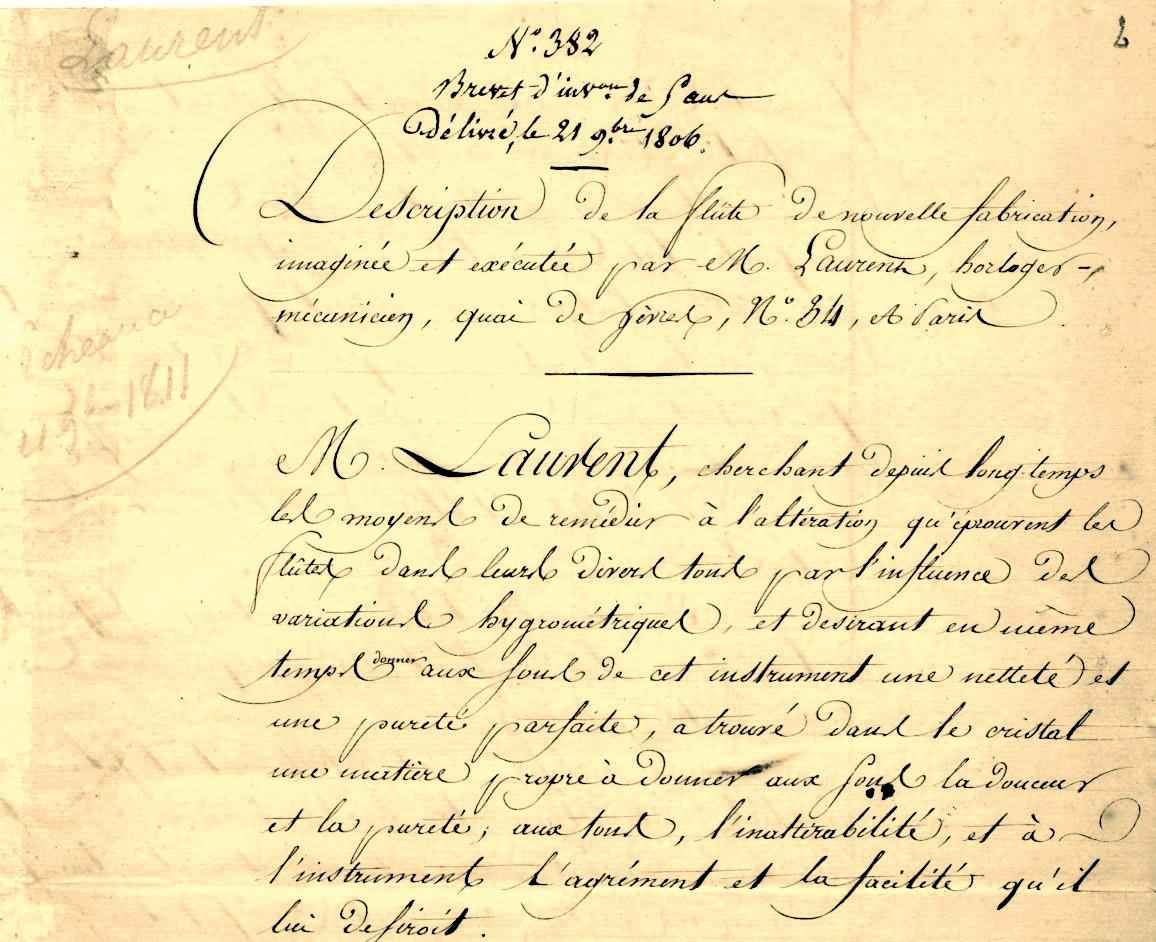 Laurent
2
N.° 382
Brevet d'inv.on de 5 ans
Délivré, le 21 9.bre 1806.
Description de la flûte de nouvelle fabrication,
imaginée et exécutée par M. Laurent, horloger-
mécanicien, quai de Gèvres, N.° 34, à Paris
1811
M. Laurent, cherchant depuis long-temps
les moyens de remédier à l'altération qu'éprouvent les
flûtes dans leurs divers tons par l'influence des
variations hygrométriques, et desirant en même
temps donner aux sons de cet instrument une netteté et
une pureté parfaite, a trouvé dans le cristal
une matière propre à donner aux sons la douceur
et la pureté; aux tons, l'inaltérabilité, et à
l'instrument l'agrément et la facilité qu'il
lui desiroit.